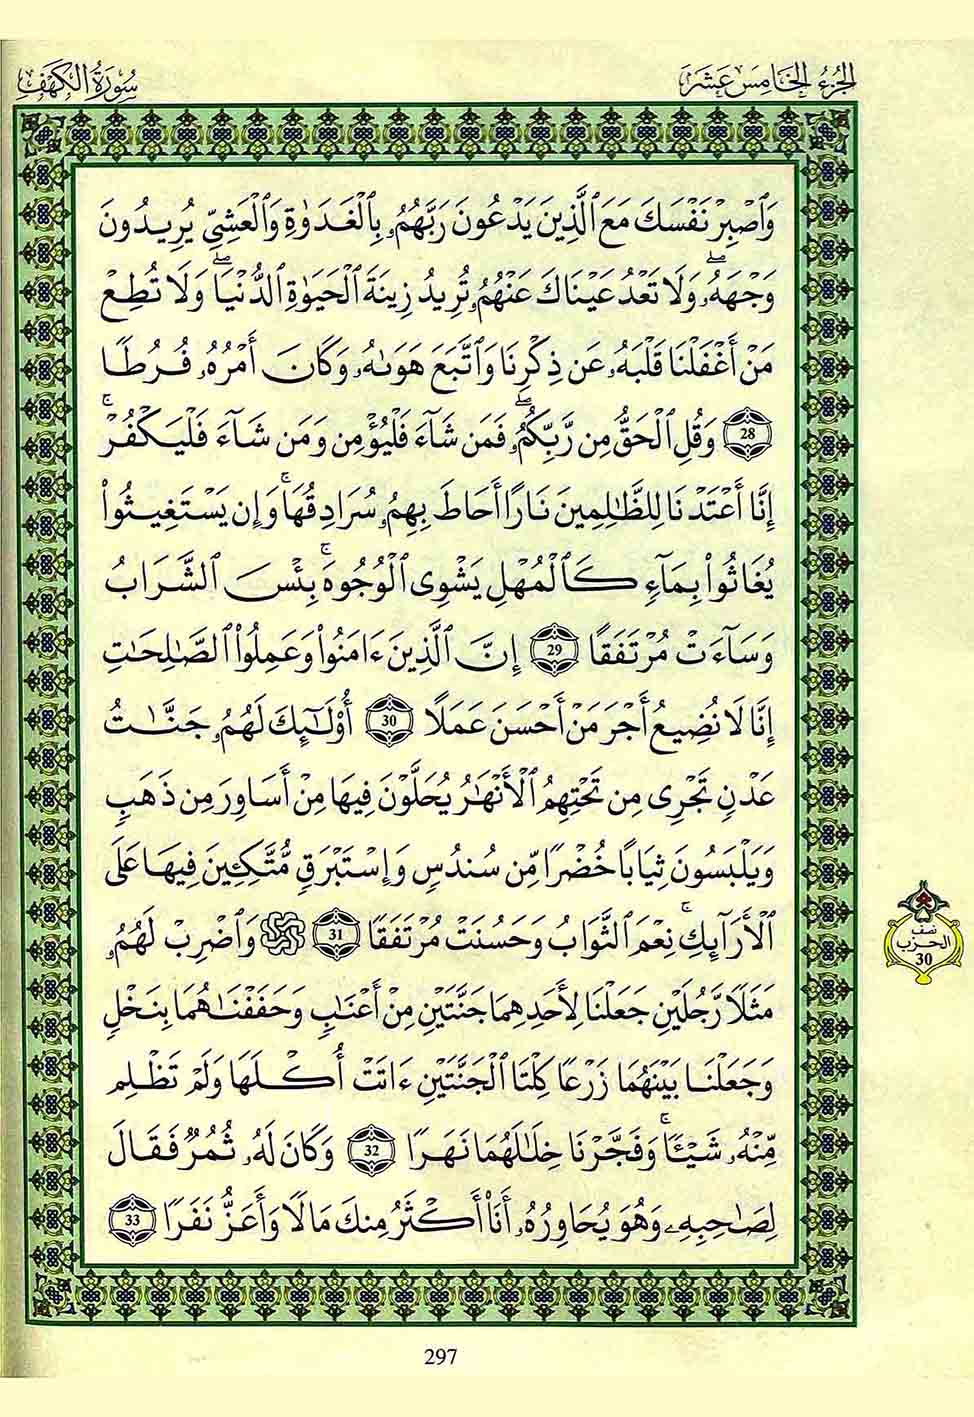 الجزء الخامس عشر
سورة الكهف
وَٱصۡبِرۡ نَفۡسَكَ مَعَ ٱلَّذِينَ يَدۡعُونَ رَبَّهُمُۥ بِٱلۡغَدَوٰةِ وَٱلۡعَشِيِّ يُرِيدُونَ
وَجۡهَهُۥۖ وَلَا تَعۡدُ عَيۡنَاكَ عَنۡهُمُۥ تُرِيدُ زِينَةَ ٱلۡحَيَوٰةِ ٱلدُّنۡيَاۖ وَلَا تُطِعۡ
مَنۡ أَغۡفَلۡنَا قَلۡبَهُۥ عَن ذِكۡرِنَا وَٱتَّبَعَ هَوَىٰهُۥ وَكَانَ أَمۡرُهُۥ فُرُطٗا
28 وَقُلِ ٱلۡحَقُّ مِن رَّبِّكُمُۥۖ فَمَن شَآءَ فَلۡيُؤۡمِن وَمَن شَآءَ فَلۡيَكۡفُرۡۚ
إِنَّا أَعۡتَدۡنَا لِلظَّٰلِمِينَ نَارًا أَحَاطَ بِهِمُۥ سُرَادِقُهَاۚ وَإِن يَسۡتَغِيثُواْ
يُغَاثُواْ بِمَآءٖ كَٱلۡمُهۡلِ يَشۡوِي ٱلۡوُجُوهَۚ بِئۡسَ ٱلشَّرَابُ
وَسَآءَتۡ مُرۡتَفَقًا 29 إِنَّ ٱلَّذِينَ ءَامَنُواْ وَعَمِلُواْ ٱلصَّٰلِحَٰتِ
إِنَّا لَا نُضِيعُ أَجۡرَ مَنۡ أَحۡسَنَ عَمَلًا 30 أُوْلَٰٓئِكَ لَهُمُۥ جَنَّٰتُ
عَدۡنٖ تَجۡرِي مِن تَحۡتِهِمُ ٱلۡأَنۡهَٰرُ يُحَلَّوۡنَ فِيهَا مِنۡ أَسَاوِرَ مِن ذَهَبٖ
وَيَلۡبَسُونَ ثِيَابًا خُضۡرٗا مِّن سُندُسٖ وَإِسۡتَبۡرَقٖ مُّتَّكِـِٔينَ فِيهَا عَلَى
ٱلۡأَرَآئِكِۚ نِعۡمَ ٱلثَّوَابُ وَحَسُنَتۡ مُرۡتَفَقٗا 31 وَٱضۡرِبۡ لَهُمُۥ
مَثَلٗا رَّجُلَيۡنِ جَعَلۡنَا لِأَحَدِهِمَا جَنَّتَيۡنِ مِنۡ أَعۡنَٰبٖ وَحَفَفۡنَٰهُمَا بِنَخۡلٖ
وَجَعَلۡنَا بَيۡنَهُمَا زَرۡعٗا كِلۡتَا ٱلۡجَنَّتَيۡنِ ءَاتَتۡ أُكۡلَهَا وَلَمۡ تَظۡلِم
مِّنۡهُۥ شَيۡـٔٗاۚ وَفَجَّرۡنَا خِلَٰلَهُمَا نَهَرٗا 32 وَكَانَ لَهُۥ ثُمُرٞ فَقَالَ
لِصَٰحِبِهِۦ وَهُوَ يُحَاوِرُهُۥ أَنَا۠ أَكۡثَرُ مِنكَ مَالٗا وَأَعَزُّ نَفَرٗا 33
نصف
الحزب
30
297